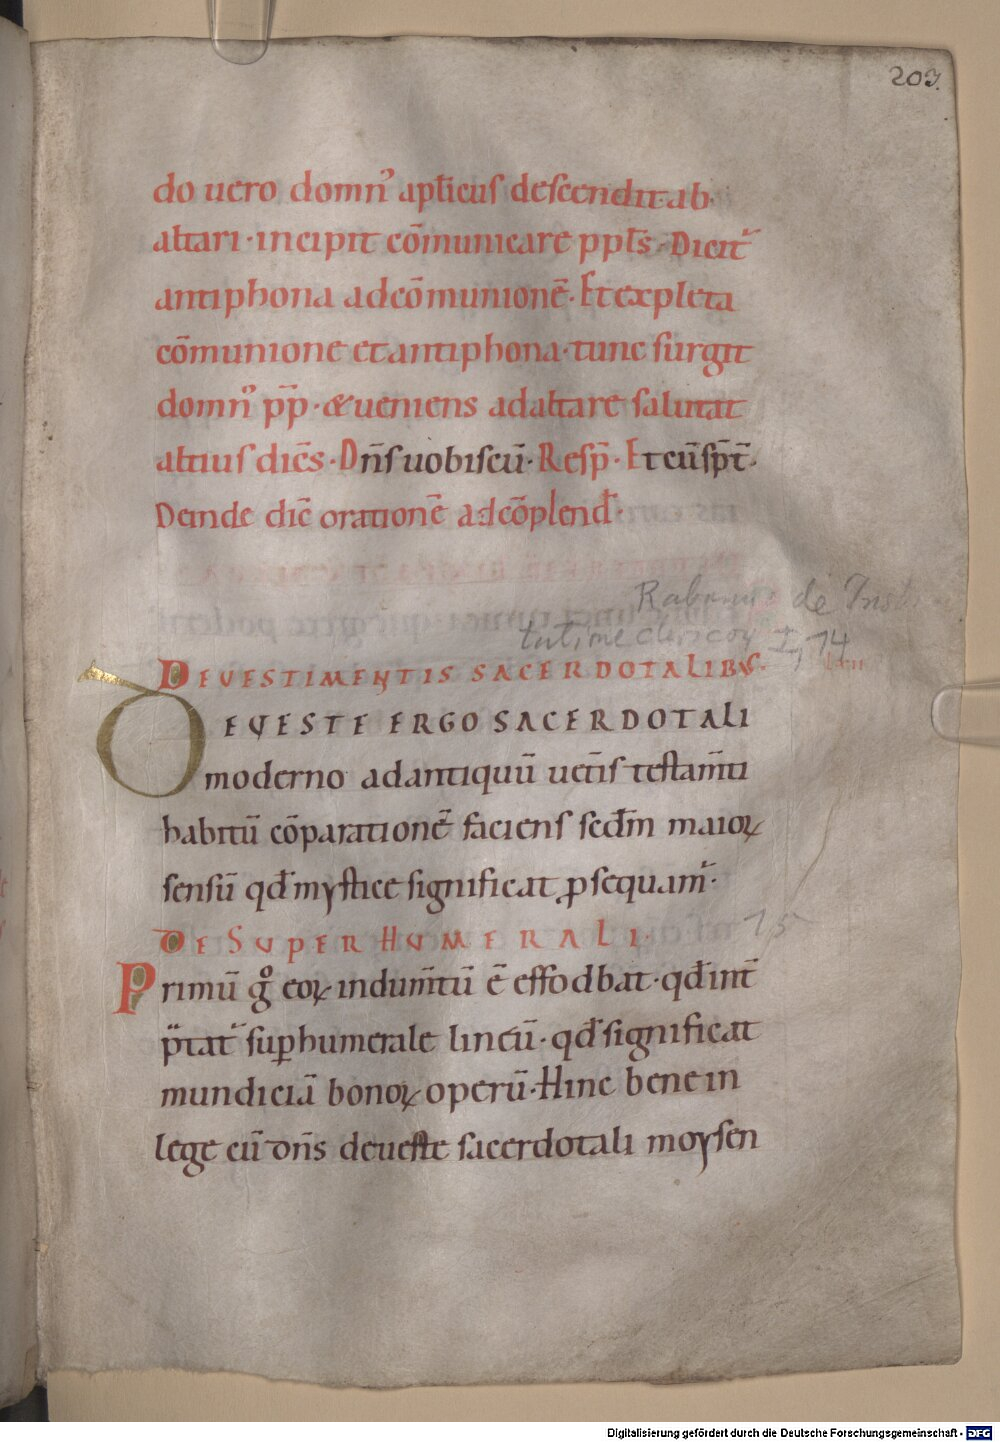 203.
do uero domn᾽ apl̄icus descendit ab
altari · incipit cōmunicare ppl̄s · Dicit᷑
antiphona ad cōmunionē · Et expleta
cōmunione et antiphona · tunc surgit
domn᾽ pp̄ · & ueniens ad altare salutat
altius dic̄s · Dn̄s uobiscū · Resp̄ · Et cū sp̄t̄ ·
Deinde dic̄ orationē ad cōplend̄ ·
Rabanus de Insti
tutione clericoꝝ I, 14
DE VESTIMENTIS SACERDOTALIBVS ·
DE VESTE ERGO SACERDOTALI
moderno ad antiquū uet̄is testam̄ti
habitū cōparationē faciens scd̄m maioꝝ
sensū qd̄ mystice significat ꝓsequam᷑ ·
DE SUPERHUMERALI 15
Primū g̊ eoꝝ indum̄tū ē effodbat · qd̄ int̄
p̄tat᷑ sup̱humerale lineū · qd̄ significat
mundiciā bonoꝝ operū · Hinc bene in
lege cū dn̄s de ueste sacerdotali moysen
Digitalisierung gefördert durch die Deutsche Forschungsgemeinschaft - DFG